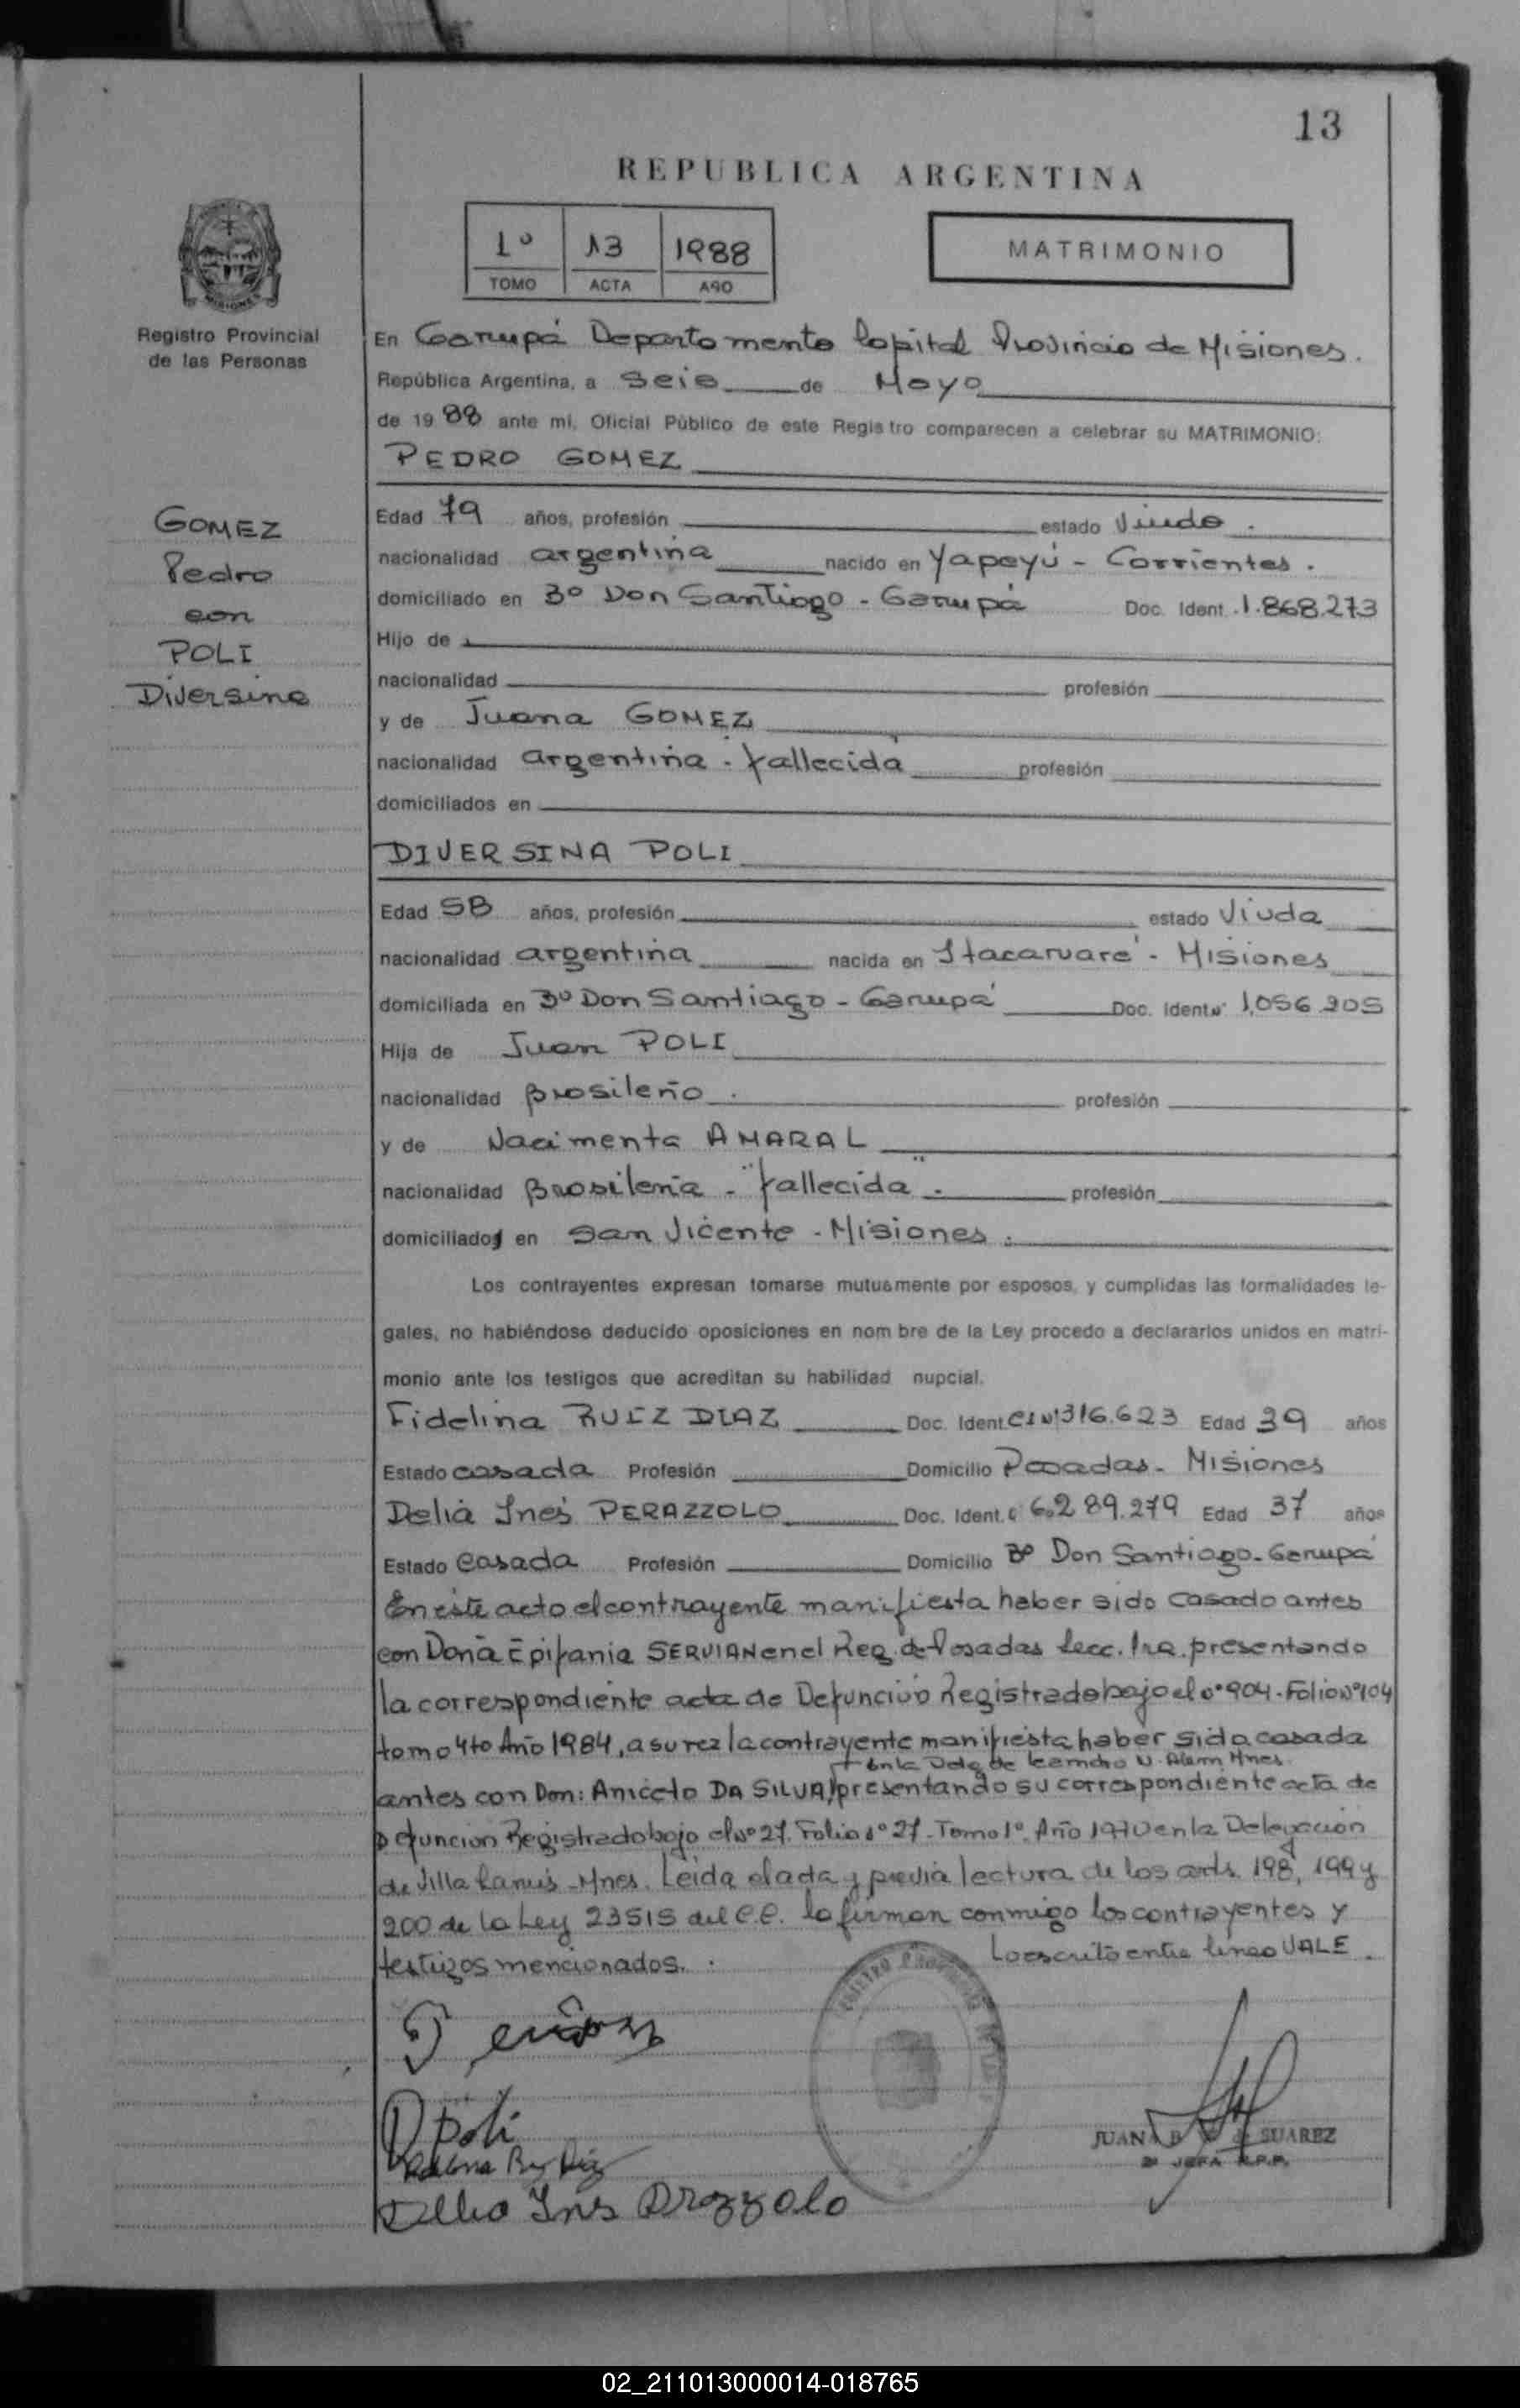 13
REPUBLICA ARGENTINA
1º 13 1988
TOMO ACTA AÑO
MATRIMONIO
Registro Provincial
de las Personas
En Garupá Departamento Capital Provincia de Misiones.
República Argentina, a Seis de Mayo
de 1988 ante mi, Oficial Público de este Registro comparecen a celebrar su MATRIMONIO:
PEDRO GOMEZ
GOMEZ
Pedro
con
POLI
Diversina
Edad 79 años, profesión estado Viudo.
nacionalidad argentina nacido en Yapeyú - Corrientes.
domiciliado en Bº Don Santiago - Garupá Doc. Ident. 1.868.273
Hijo de
nacionalidad profesión
y de Juana GOMEZ
nacionalidad argentina - fallecida profesión
domiciliados en
DIVERSINA POLI
Edad 58 años, profesión estado Viuda
nacionalidad argentina nacida en Itacaruaré - Misiones
domiciliada en Bº Don Santiago - Garupá Doc. Ident Nº 1.056.205
Hija de Juan POLI
nacionalidad Brasileño. profesión
y de Nacimenta AMARAL
nacionalidad Brasileña - "fallecida". profesión
domiciliados en San Vicente - Misiones.
Los contrayentes expresan tomarse mutuamente por esposos, y cumplidas las formalidades le-
gales, no habiéndose deducido oposiciones en nom bre de la Ley procedo a declararlos unidos en matri-
monio ante los testigos que acreditan su habilidad nupcial.
Fidelina RUIZ DIAZ Doc. Ident. CI Nº 316.623 Edad 39 años
Estado casada Profesión Domicilio Posadas - Misiones
Delia Inés PERAZZOLO Doc. Ident. 6.289.279 Edad 37 años
Estado casada Profesión Domicilio Bº Don Santiago - Garupá
En este acto el contrayente manifiesta haber sido casado antes
con Doña Epifania SERVIAN en el Reg. de Posadas Secc. 1ra. presentando
la correspondiente acta de Defunción Registrada bajo el nº 904 - Folio nº 104
tomo 4to Año 1984, a su vez la contrayente manifiesta haber sido casada
en la Deleg. de N. Alem Mnes.
antes con Don: Aniceto DA SILVA, presentando su correspondiente acta de
Defunción Registrada bajo el Nº 27. Folio nº 27 - Tomo 1º. Año 1970 en la Delegación
de Villa Lanús - Mnes. Leída el acta y previa lectura de los arts. 198, 199 y
200 de la Ley 23515 del C.C. la firman conmigo los contrayentes y
testigos mencionados.
Lo escrito entre línea VALE.
D Poli
JUANA B SUAREZ
JEFA R.P.P.
02_211013000014-018765